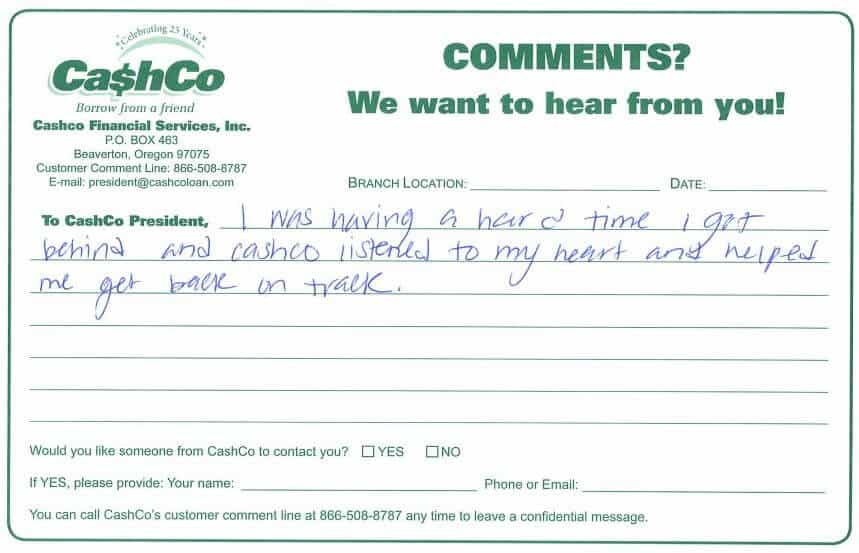 Celebrating 25 Years
Ca$hCo
Borrow from a friend
Cashco Financial Services, Inc.
P.O. BOX 463
Beaverton, Oregon 97075
Customer Comment Line: 866-508-8787
E-mail: president@cashcoloan.com
COMMENTS?
We want to hear from you!
BRANCH LOCATION: DATE:
To CashCo President, I was having a hard time I got
behind and cashco listened to my heart and helped
me get back on track.
Would you like someone from CashCo to contact you? YES NO
If YES, please provide: Your name: Phone or Email:
You can call CashCo's customer comment line at 866-508-8787 any time to leave a confidential message.